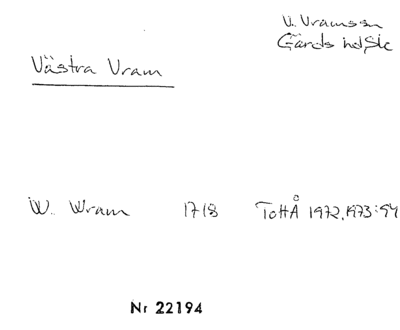 V. Vramssn
Gärds hd Sk
Västra Vram
W. Wram 1718 ToHÅ 1972,1973:94
Nr 22194